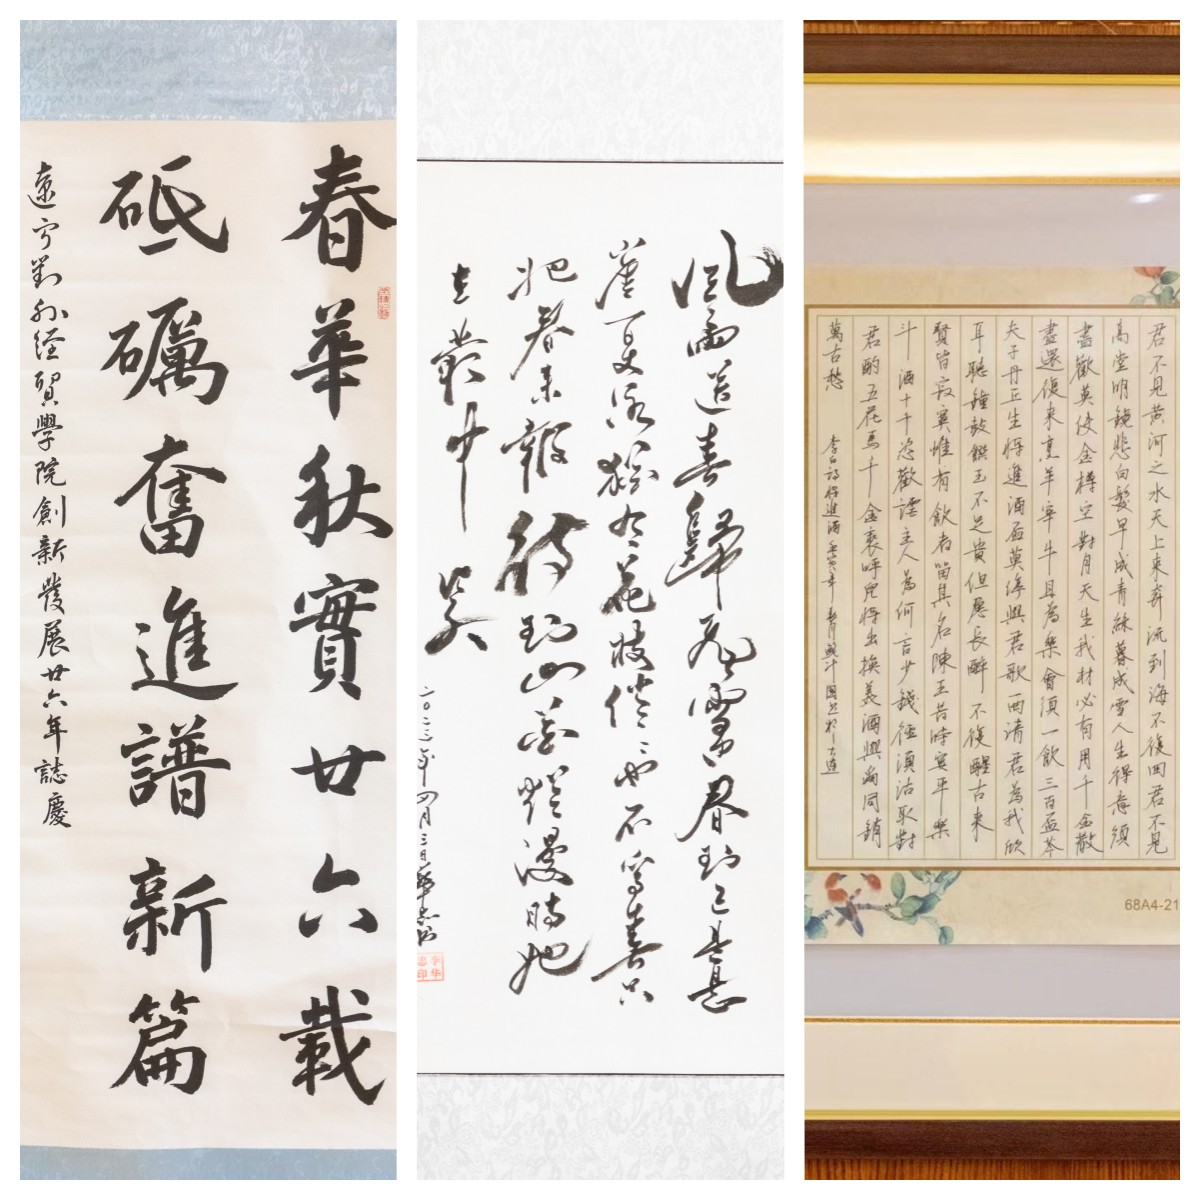 春華秋實廿六載
砥礪奮進譜新篇
遼宁對外经貿學院創新發展廿六年誌慶
風雨送春歸飛雪春到已是悬
崖百丈冰猶有花枝俏俏也不爭春只
把春来報待到山花爛漫時她
在叢中笑
二〇二二年四月三日華忠书
李华忠印
君不見黄河之水天上来奔流到海不復回君不見
高堂明鏡悲白髮早成青絲暮成雪人生得意須
盡歡莫使金樽空對月天生我材必有用千金散
盡還復来烹羊宰牛且為樂會須一飲三百盃岑
夫子丹丘生將進酒盃莫停與君歌一曲請君為我倾
耳聽鐘鼓饌玉不足貴但愿長醉不復醒古来
賢皆寂寞惟有飲者留其名陳王昔時宴平樂
斗酒十千恣歡謔主人為何言少錢徑須沽取對
君酌五花馬千金裘呼兒將出換美酒與爾同銷
萬古愁
李白詩將進酒壬寅年於大連
68A4-21